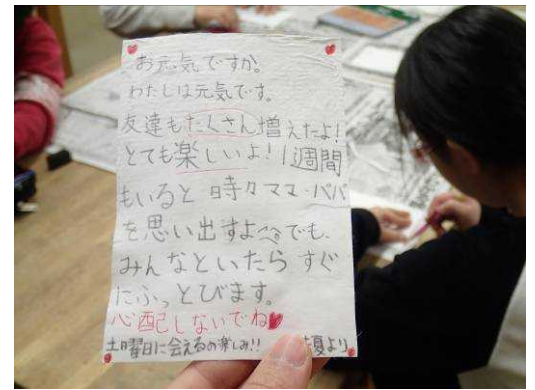 お元気ですか。
わたしは元気です。
友達もたくさん増えたよ!
とても楽しいよ!1週間
もいると時々ママ・パパ
を思い出すよ でも、
みんなといたら すぐ
にふっとびます。
心配しないでね
土曜日に会えるの楽しみ!! 夏より